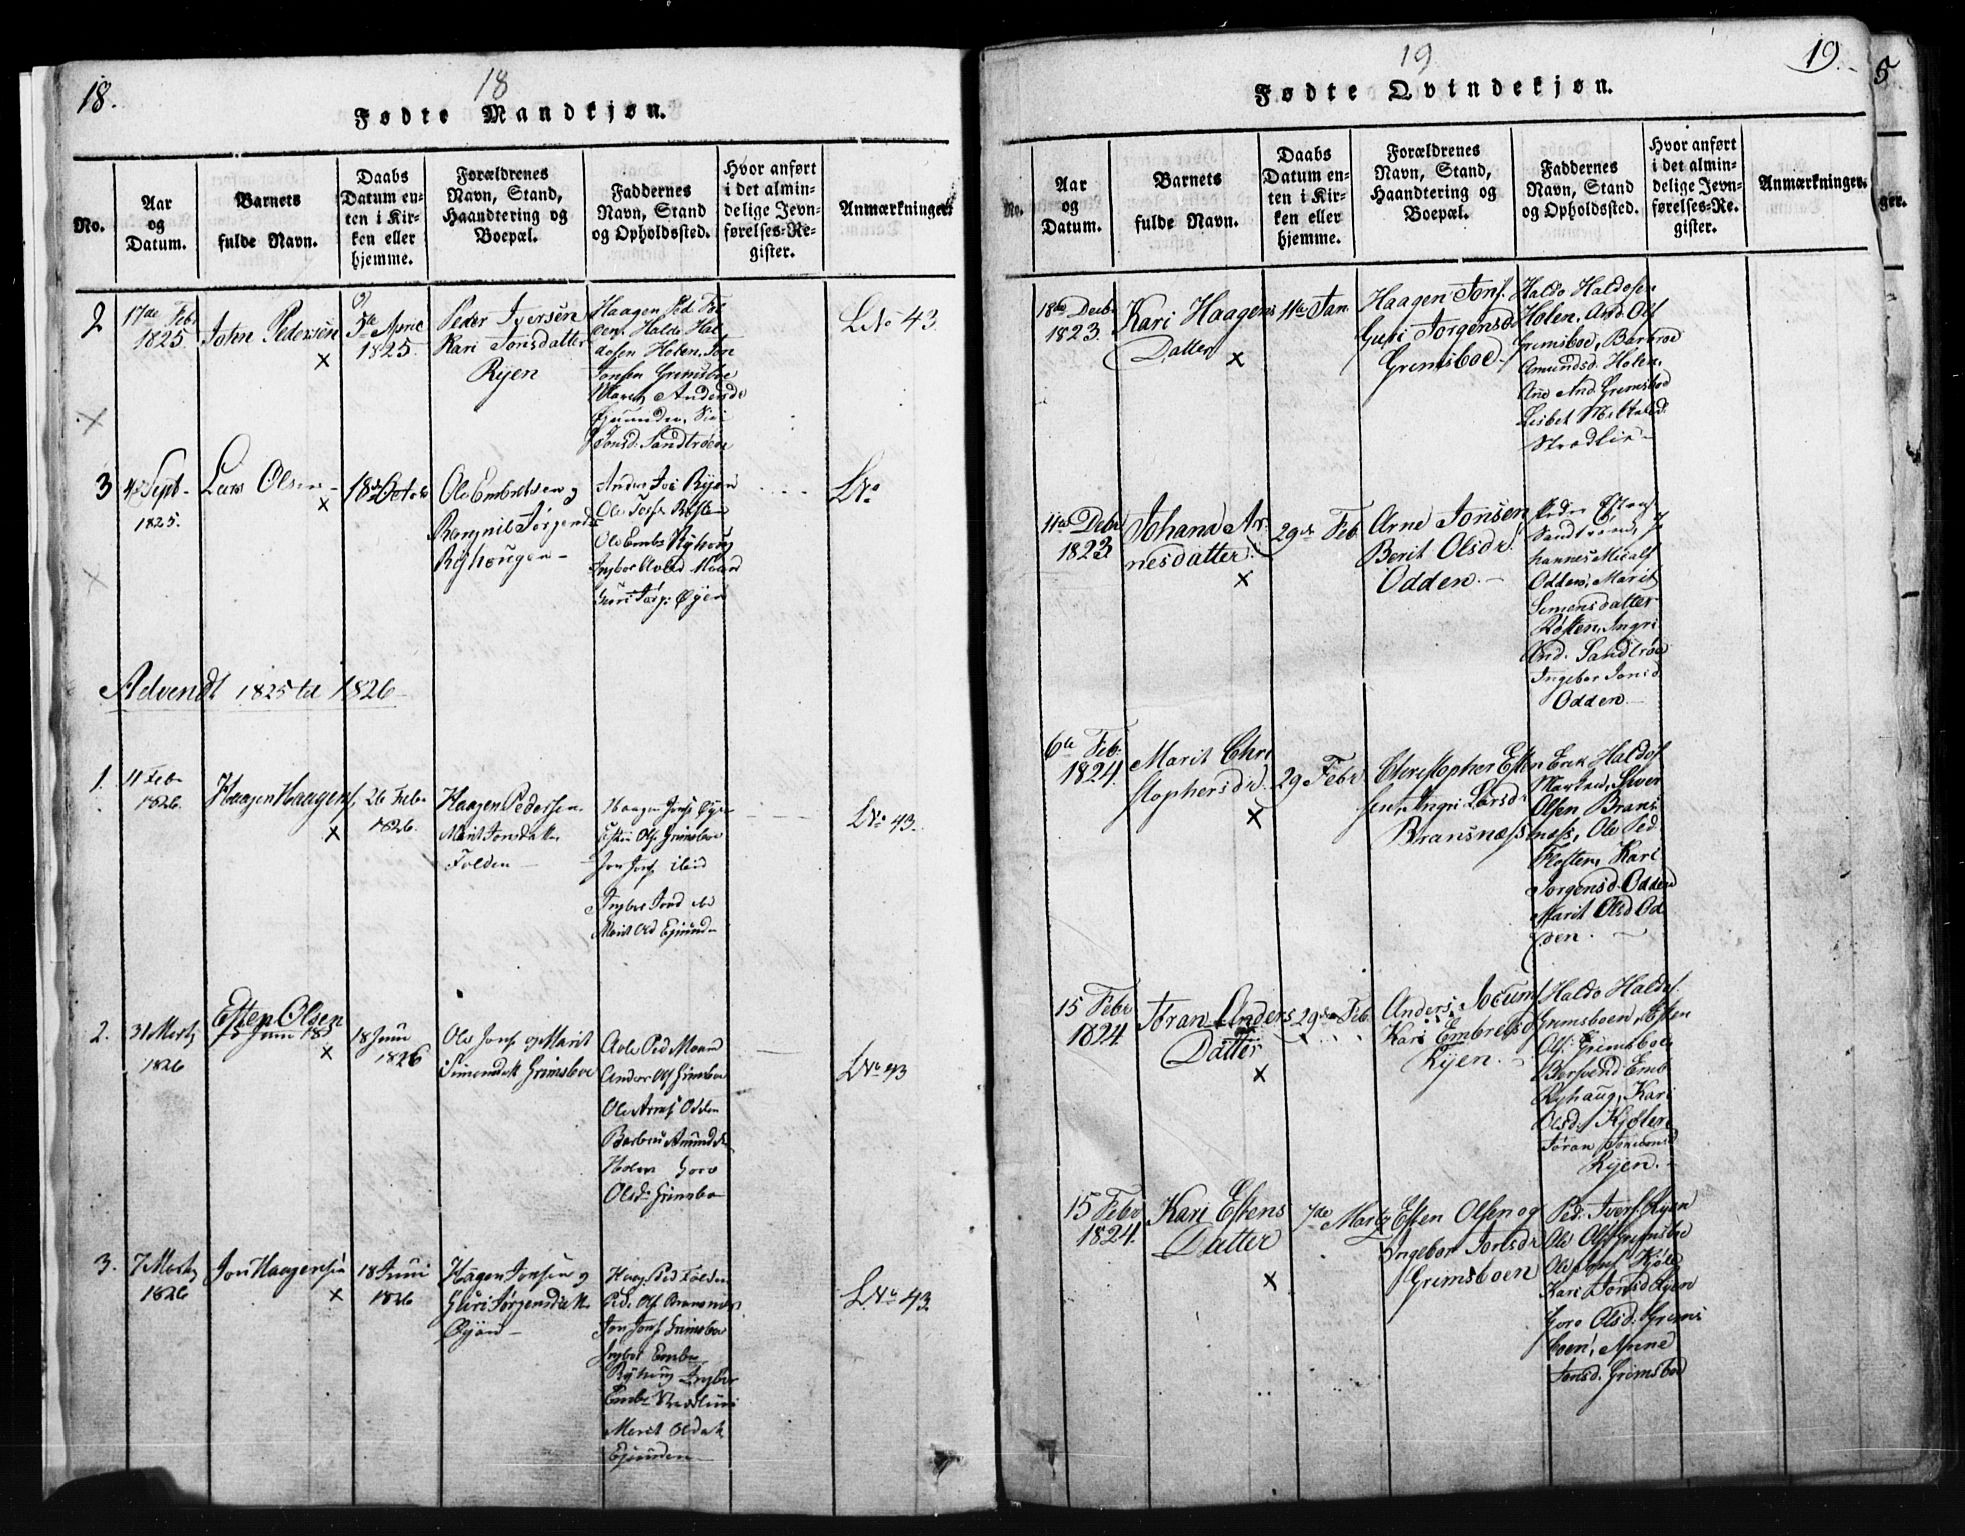 18.
18
Fødte Mandkjøn.
No.
Aar
og
Datum.
Barnets
fulde Navn.
Daabs
Datum en-
ten i Kir-
ken eller
hjemme.
Forældrenes
Navn, Stand,
Haandtering og
Boepæl.
Faddernes
Navn, Stand
og Opholdssted.
Hvor anført
i det almin-
delige Jevn-
førelses-Re-
gister.
Anmærkninger.
2
17de Feb.
1825
John Pedersen
x
5te April
1825
Peder Iversen
Kari Jonsdatter
Ryen
Haagen Ped. Fol
den, Haldo Hal
dosen Holen, Jon
Jonsen Grimsboe
Maret Andersd.
Jonsd. Sandtrøen
LNo 43.
3
4de Sept.
1825.
Lars Olsen
x
18de Octob.
Ole Embretsen og
Rangnil Jørgensd
Ryhougen
Ole Embr Ryhoug
LNo
Advendt 1825 til 1826
1.
11 Feb.
1826.
Haagen Haagens.
x
26 Feb.
1826.
Haagen Pedersen
Marit Jonsdatter
Folden
Haagen Jons. Øyen
Esten Ols. Grimsboe
Jon Jons. ibid
LNo 43.
2.
31 Marts
1826
Esten Olsen
x
18 Juni
1826
Ole Jons. og Marit
Simensdatt Grimsboe
Anders Ols Grimsboe
Ole Arnes. Odden
Barbru Amundsd.
Holen Goro
Olsd. Grimsbo
LNo 43
3.
7 Marts
1826
Jon Haagensen
x
18 Juni
1826
Hagen Jonsen og
Guri Jørgensdatt.
Haag. Ped Folden
Ped. Ols. Bransnes
Jon Jons. Grimsboe
Ingbor Embr
Ryhoug Ingbor
Marit Olsdatt.
LNo 43
19
19.
5
Fødte Qvindekjøn.
No.
Aar
og
Datum.
Barnets
fulde Navn.
Daabs
Datum en-
ten i Kir-
ken eller
hjemme.
Forældrenes
Navn, Stand,
Haandtering og
Boepæl.
Faddernes
Navn, Stand
og Opholdssted.
Hvor anført
i det almin-
delige Jevn-
førelses-Re-
gister.
Anmærkninger.
ger.
18de Decb.
1823.
Kari Haagens
Datter
x
11te Jan.
Haagen Jons.
Guri Jorgensd.
Grimsboe
Haldo Haldosen
Holen, And. Ols
Grimsboe, Barbroe
Amundsd. Holen,
Ane And. Grimsboe
Lisbet Mikkelsd.
Strødlien
11te Decbr
1823
Johana Ar-
nesdatter
x
29de Feb.
Arne Jonsen
Berit Olsdr.
Odden.
Peder Estens
Sandtrøen, Jo
hannes Micals
Odden, Marit
Simensdatter
Røsten, Ingri
And. Sandtrøe
Ingebor Jonsd
Odden
6te Feb.
1824.
Marit Chri
stophersdr.
x
29 Febr
Christopher Esten
sen, Ingri Larsdr
Bransnæss
Erik Haldos
Siver
Olsen Brans
næss, Ole Ped.
Flosten, Kari
Jorgensd. Odden
Marit Olsd Od
den.
15 Febr
1824
Jøran Anders
Datter
x
29de Feb.
Anders Jocums
Kari Embretsd
Ryen.
Haldo Haldos.
Grimsboen, Esten
Ols. Grimsboe
Embr
Ryhaug, Kari
Olsd. Kjølen
Jøran Simensd
Ryen.
15 Febr
1824.
Kari Estens
Datter
x
7de Marts
Esten Olsen og
Ingebor Jonsdr
Grimsboen
Ped. Ivers. Ryen
Ole Ols Grimsboe
Kari Jonsd. Ryen
Goro Olsd. Grims
boen, Anne
Jonsd. Grimsboe